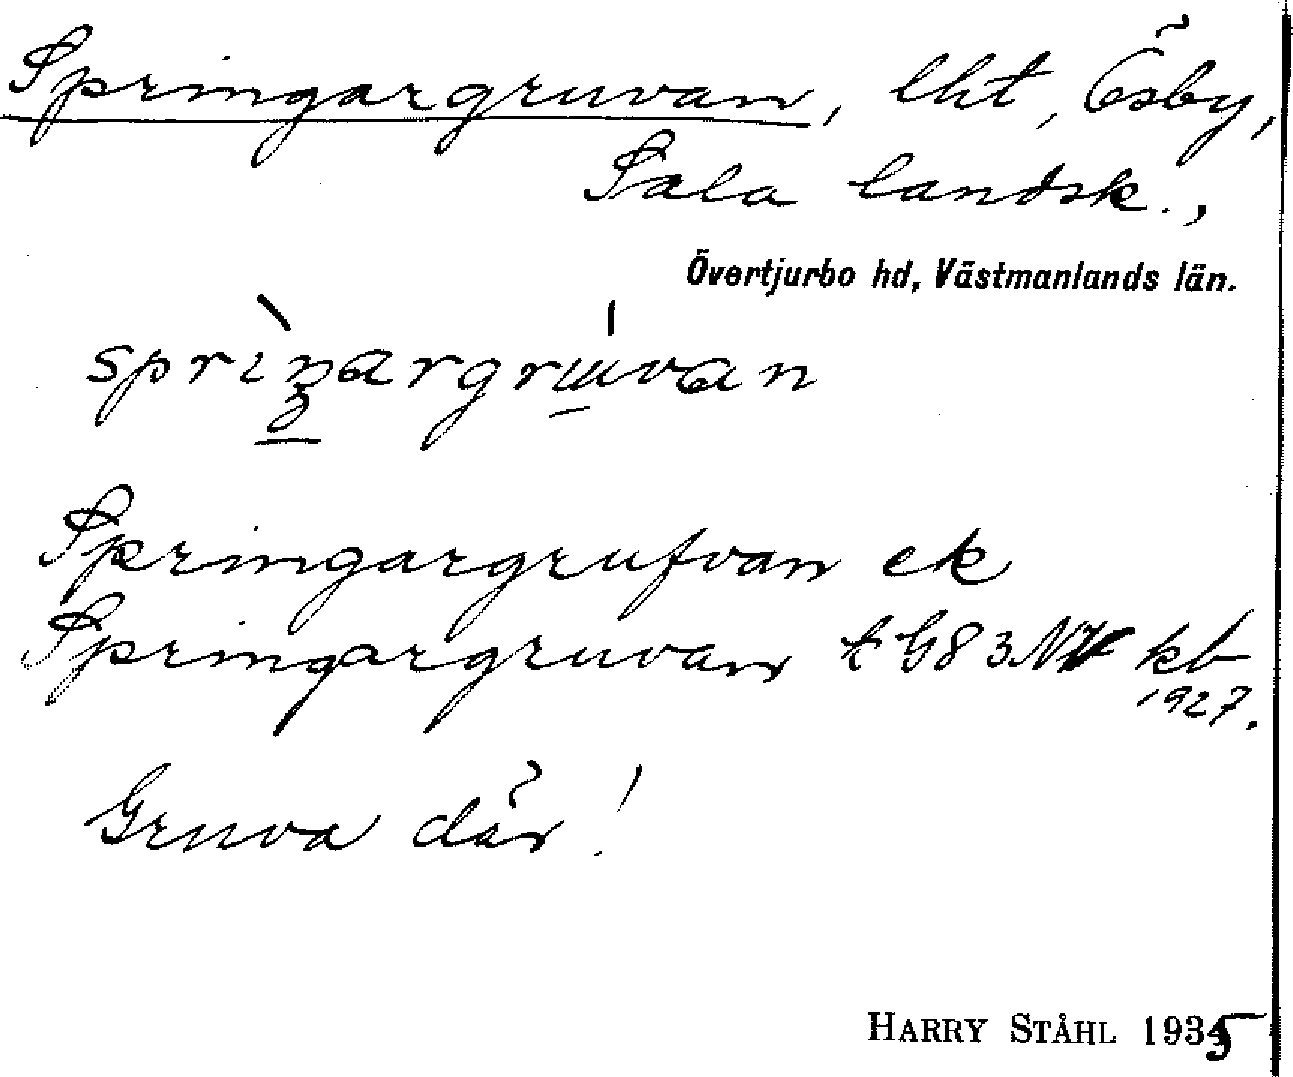 Springargruvan, lht, Ösby,
Sala landsk.,
Övertjurbo hd, Västmanlands län.
sprìŋargrúvan
Springargrufvan ek
Springargruvan t G8 3 NV kb
1927.
Gruva där!
HARRY STÅHL 1935